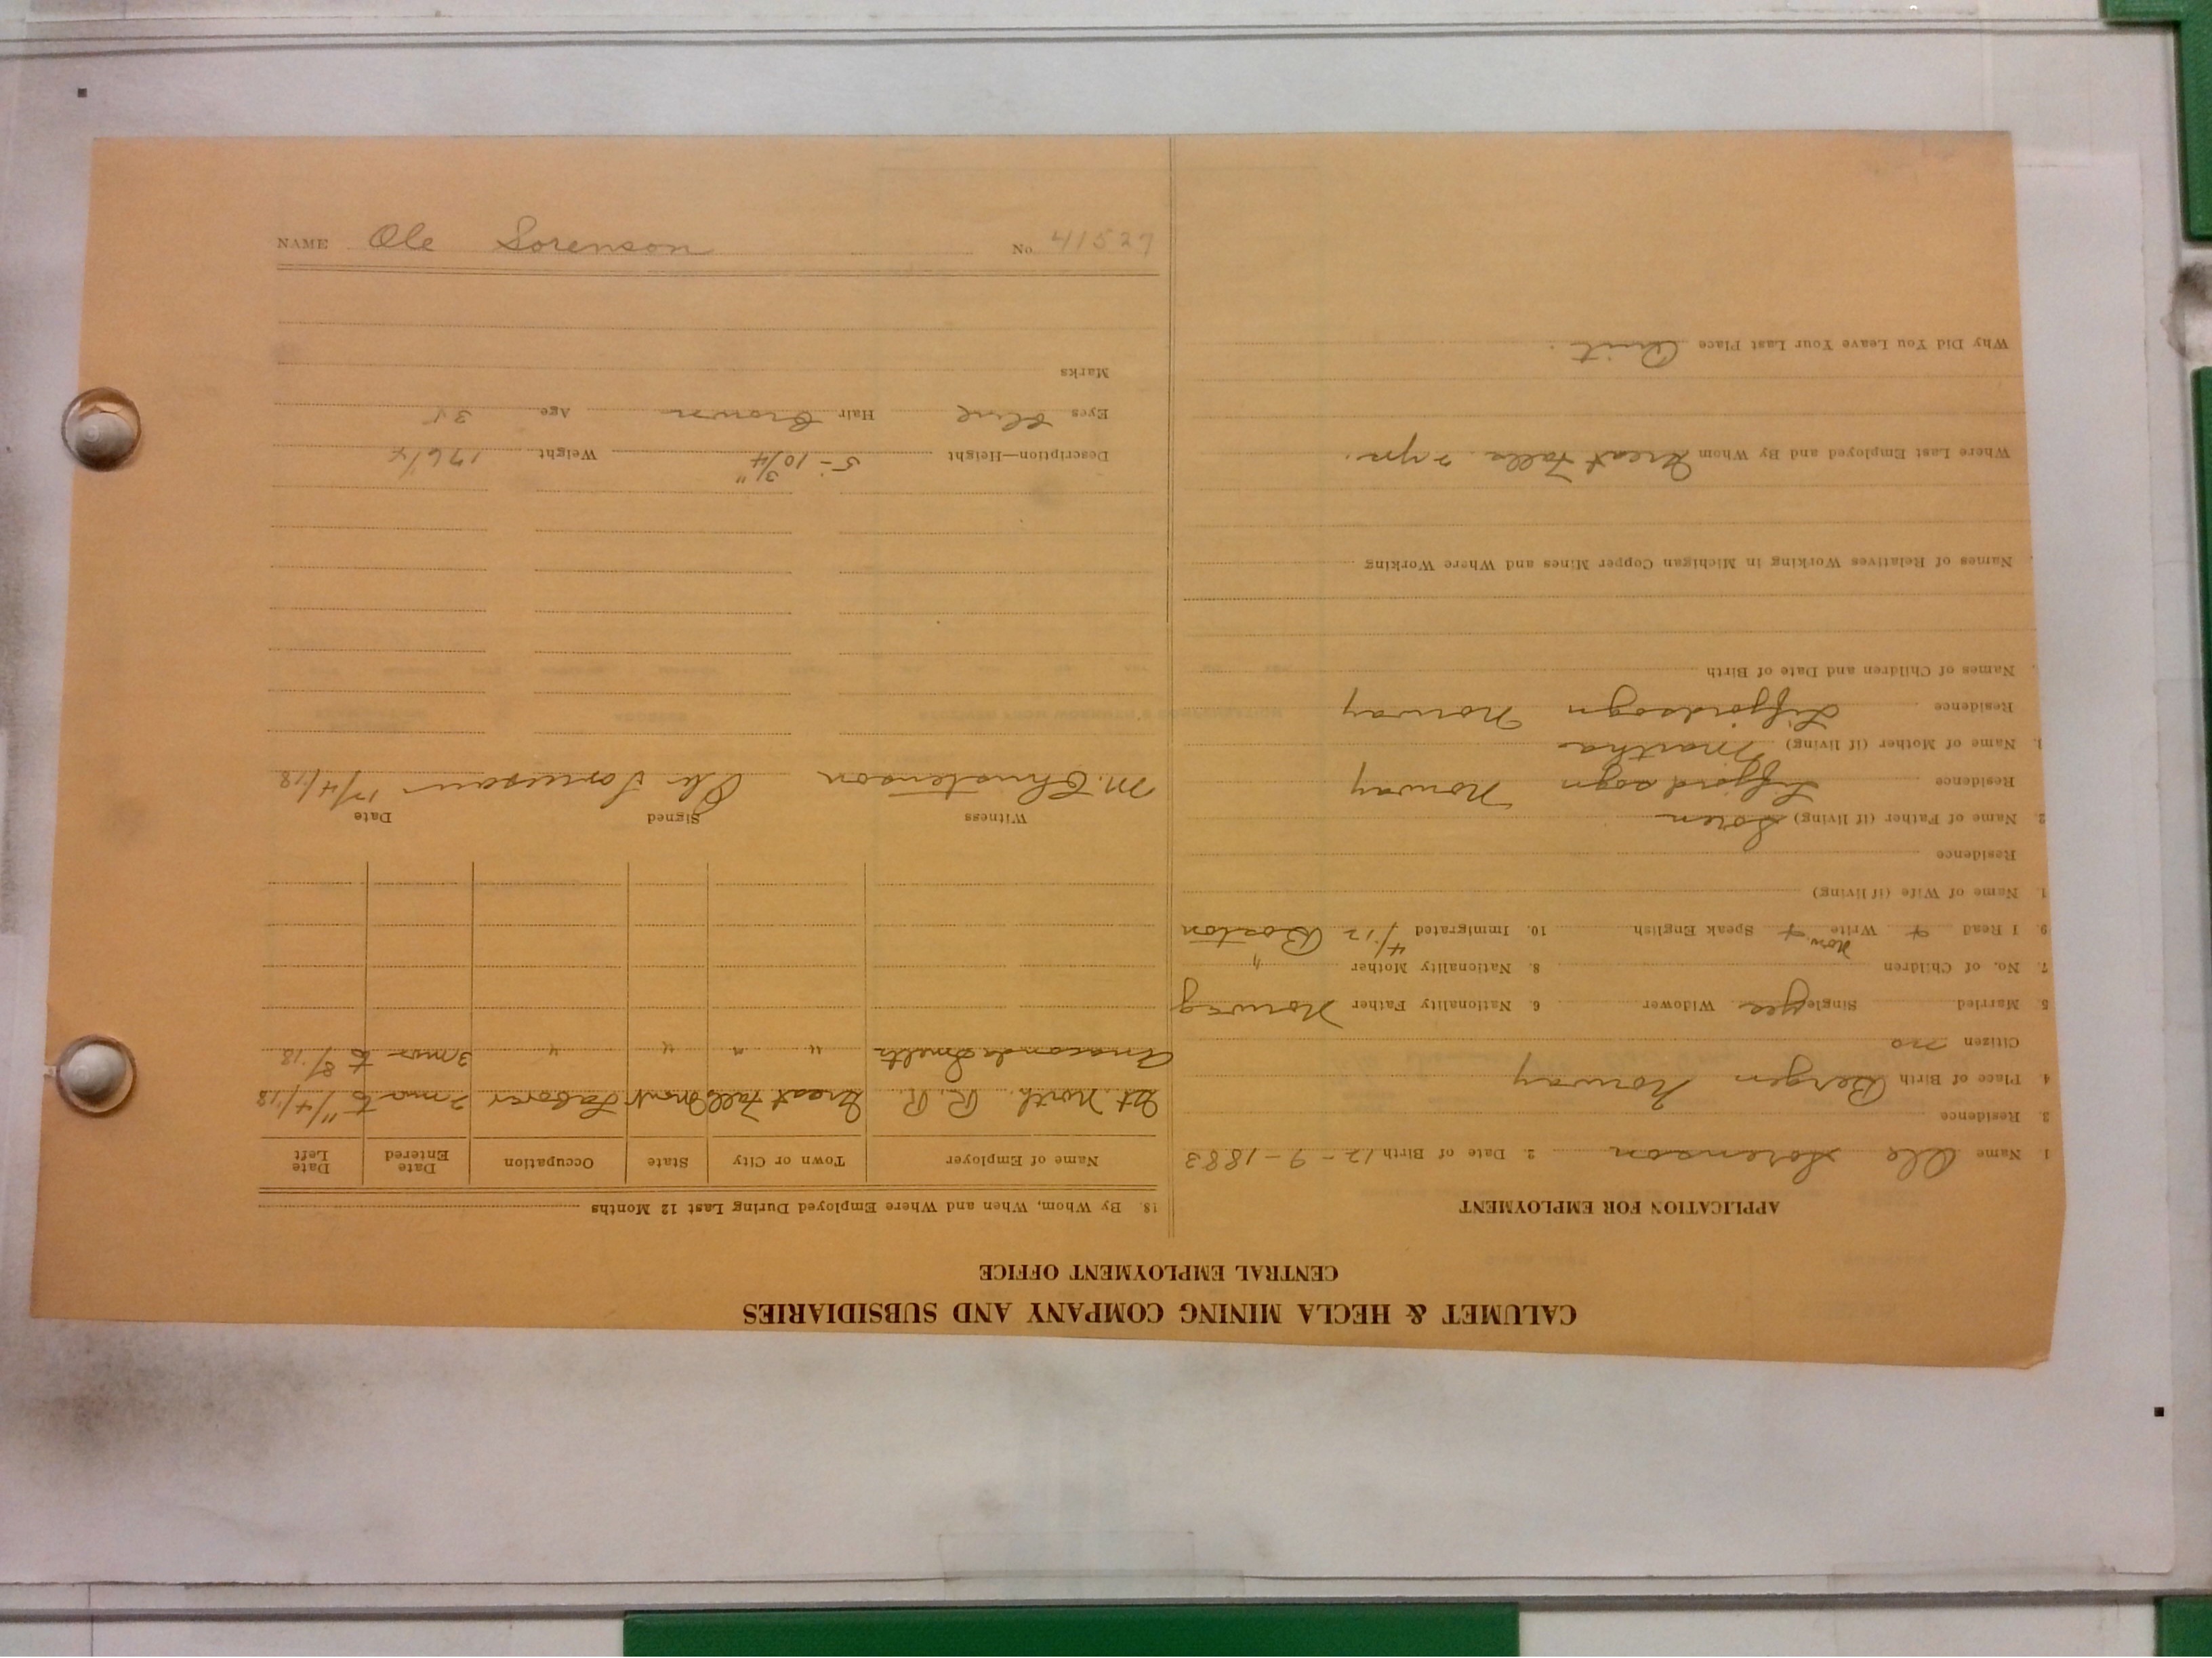 CALUMET & HECLA MINING COMPANY AND SUBSIDIARIES
CENTRAL EMPLOYMENT OFFICE
APPLICATION FOR EMPLOYMENT
1 Name Ole Sorenson 2. Date of Birth 12-9-1883
3 Residence
4. Place of Birth Bergen Norway
Citizen no
5. Married Single yes Widower 6. Nationality Father Norweg
7. No. of Children 8. Nationality Mother "
Nor.
9. I Read + Write + Speak English 10. Immigrated 4/12 Boston
1. Name of Wife (if living)
Residence
2. Name of Father (if living) Soren
Residence Norway
1. Name of Mother (if living) Martha
Residence Norway
Names of Children and Date of Birth
Names of Relatives Working in Michigan Copper Mines and Where Working
Where Last Employed and By Whom Great Falls. 2 yrs.
Why Did You Leave Your Last Place Quit.
18. By Whom, When and Where Employed During Last 12 Months
Name of Employer Town or City State Occupation Date Entered Date Left
Gt. North. R. R. Great Falls Mont Laborer 2 mos to 11/4/18
Anaconda Smelts " " " " 3 mos to 8/18
Witness Signed Date
M. Christenson Ole Sorensen 12/4/18
Description—Height 5-10 3/4" Weight 176 1/2
Eyes Blue Hair Brown Age 35
Marks
NAME Ole Sorenson No. 41527